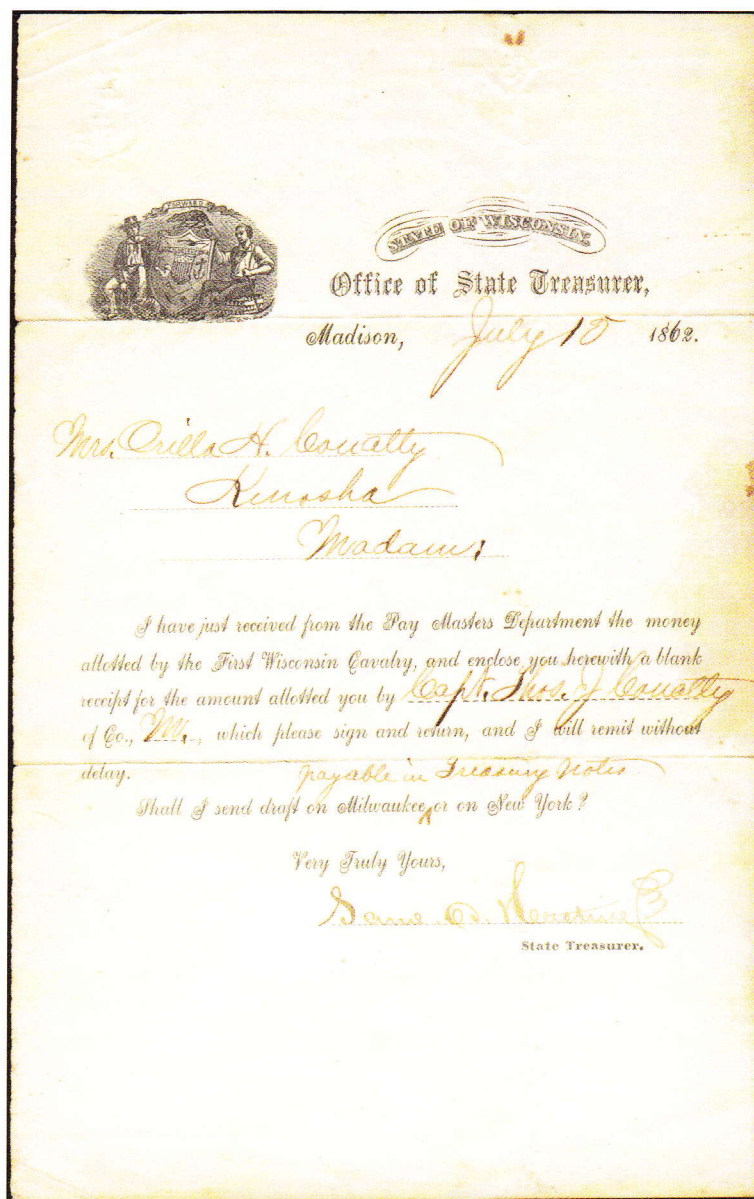 FORWARD
STATE OF WISCONSIN.
Office of State Treasurer,
Madison, July 10 1862.
Mrs. Orilla H. Conatty
Kenosha
Madam;
I have just received from the Pay Masters Department the money
allotted by the First Wisconsin Cavalry, and enclose you herewith a blank
receipt for the amount allotted you by Capt. Thos. J Conatty
of Co., M., which please sign and return, and I will remit without
delay.
payable in Treasury Notes
Shall I send draft on Milwaukee, or on New York?
Very Truly Yours,
Sam. D. Hastings
State Treasurer.